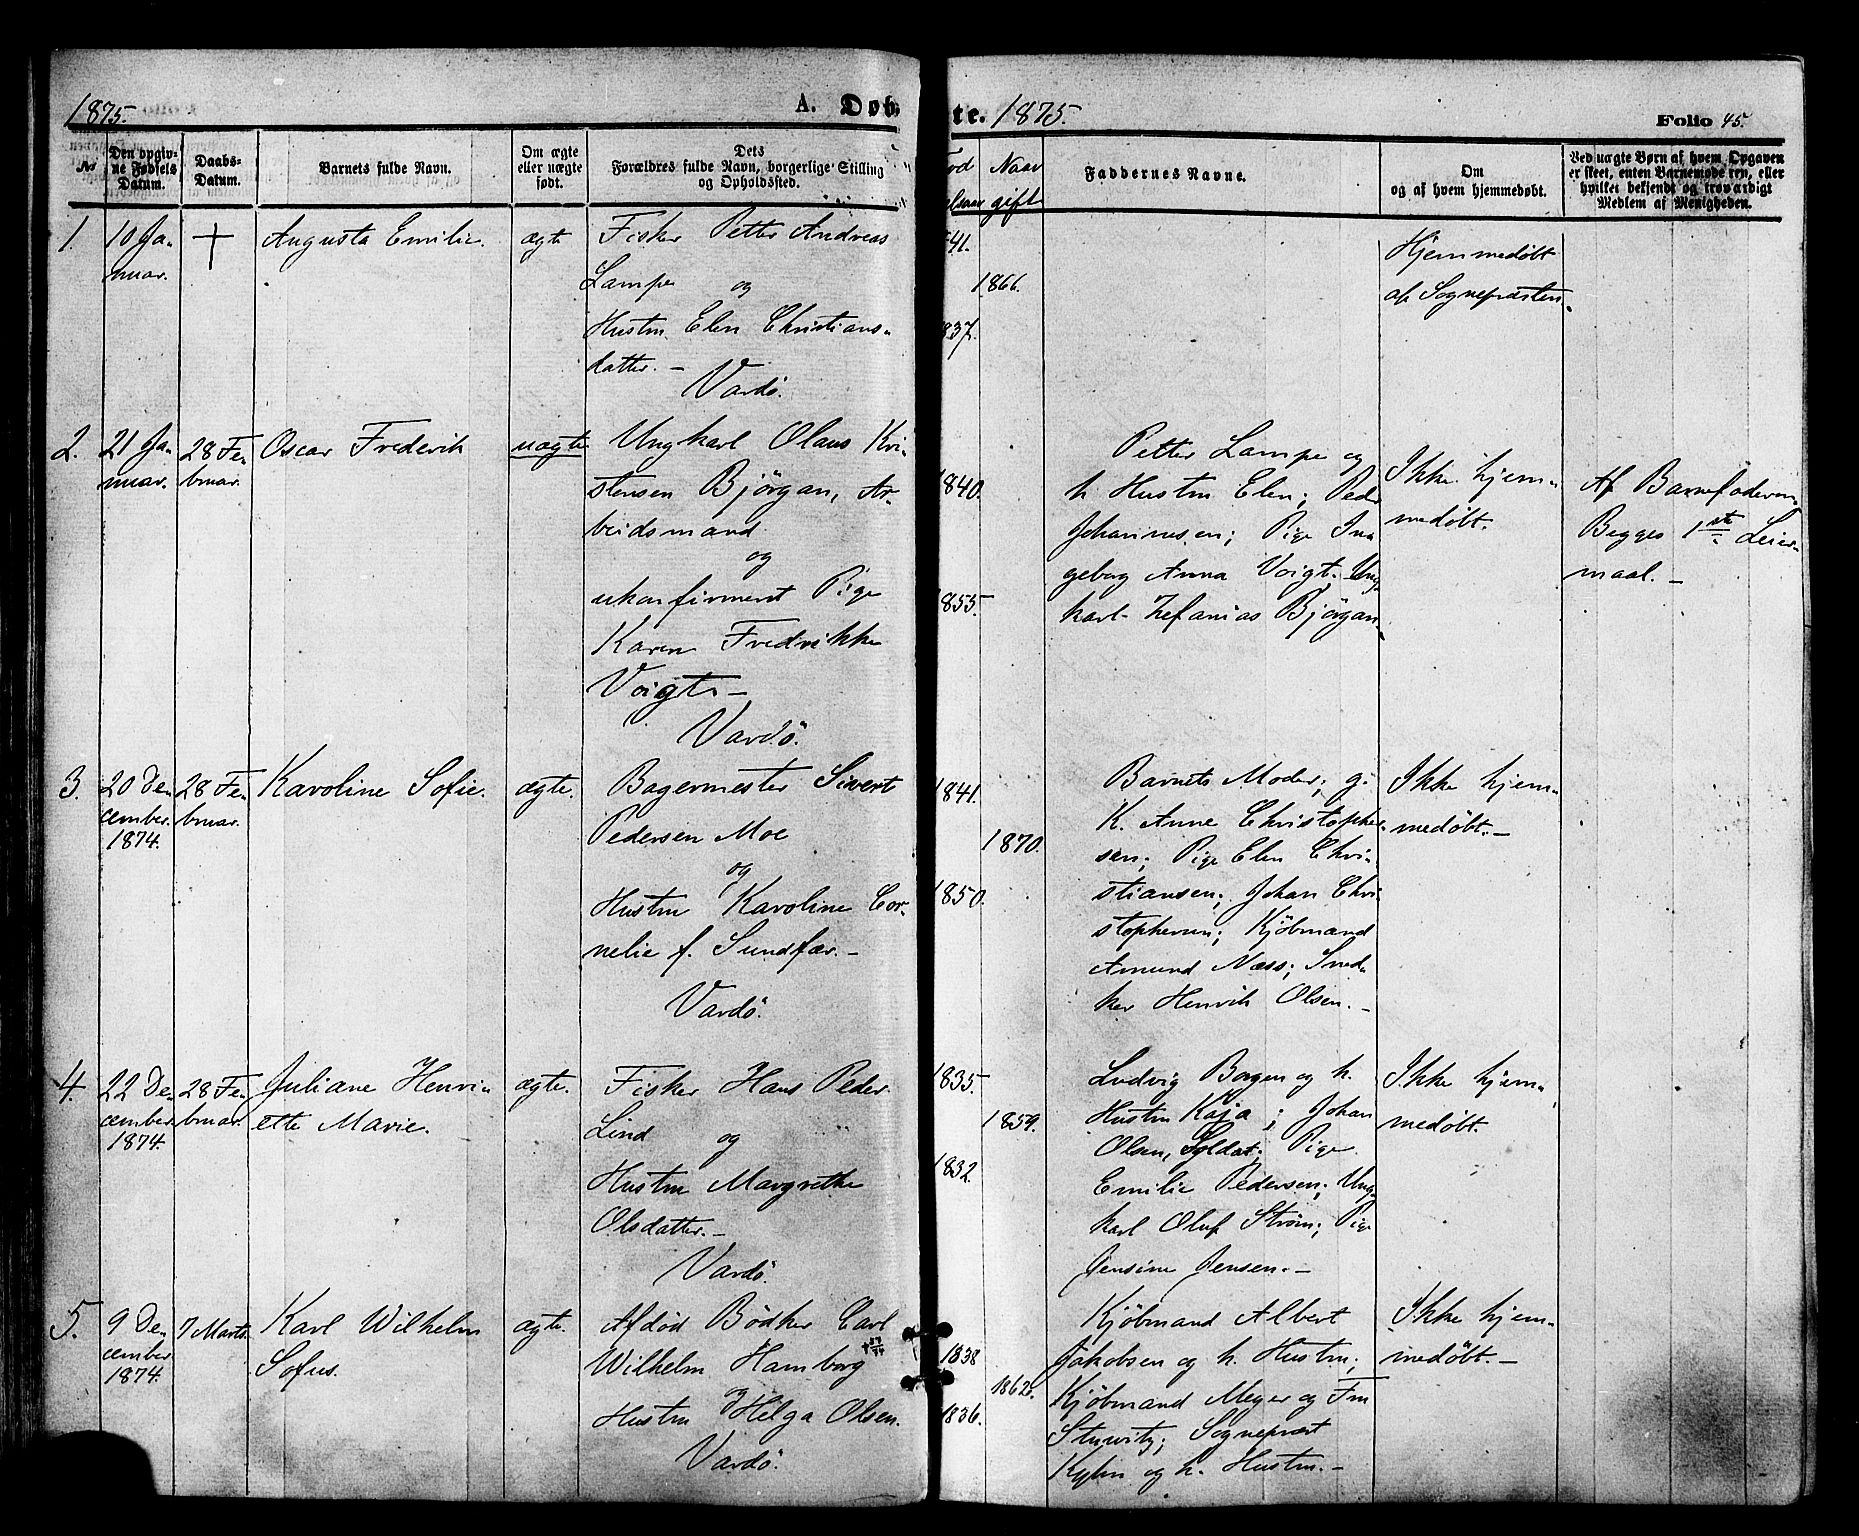 1875.
A. Døb-
te. 1875.
Folio 45.
№
Den opgiv-
ne Fødsels
Datum.
Daabs-
Datum.
Barnets fulde Navn.
Om ægte
eller uægte
født.
Dets
Forældres fulde Navn, borgerlige Stilling
og Opholdssted.
Naar
gift
Faddernes Navne.
Om
og af hvem hjemmedøbt.
Ved uægte Børn af hvem Opgaven
er skeet, enten Barnemoderen, eller
hvilket bekjendt og troværdigt
Medlem af Menigheden.
1.
10 Ja-
nuar.
+
Augusta Emilie.
ægte
Fisker Petter Andreas
Lampe og
Hustru Elen Christians-
datter. -
Vardö.
41.
1866.
837.
Hjemmedøbt
af Sognepræsten.
2.
21 Ja-
nuar.
28 Fe-
bruar.
Oscar Frederik
uægte
Ungkarl Olaus Kri-
stensen Björgan, Ar-
beidsmand
og
ukonfirmert Pige
Karen Fredrikke
Voigt. -
Vardö.
1840.
1855.
Petter Lampe og
h. Hustru Elen; Peder
Johannesen; Pige In-
geborg Anna Voigt; Ung-
karl Zefanias Björgan.
Ikke hjem-
medøbt.
Af Barnefaderen
Begges 1ste Leier-
maal. -
3.
20 De-
cember
1874.
28 Fe-
bruar.
Karoline Sofie.
ægte.
Bagermester Sivert
Pedersen Moe
og
Hustru Karoline Cor-
nelie f. Sundfær. -
Vardö.
1841.
1870.
1850.
Barnets Moder; g.
K. Anne Christopher-
sen; Pige Elen Chri-
stiansen; Johan Chri-
stophersen; Kjöbmand
Amund Næss; Sned-
ker Henrik Olsen. -
Ikke hjem-
medøbt. -
4.
22 De-
cember
1874.
28 Fe-
bruar.
Juliane Henri-
ette Marie.
ægte.
Fisker Hans Peder
Lind og
Hustru Margrethe
Olsdatter. -
Vardö.
1835.
1859.
1832.
Ludvig Borgen og h.
Hustru Kaja; Johan
Olsen, Soldat; Pige
Emilie Pedersen; Ung-
karl Oluf Strøm; Pige
Jensine Jensen. -
Ikke hjem-
medøbt.
5.
9 De-
cember
1874.
7 Marts.
Karl Wilhelm
Sofus.
ægte.
Afdød Bødker Carl
Wilhelm Hamborg
og
Hustru Helga Olsen.
Vardö.
1838
1862.
1836.
Kjöbmand Albert
Jakobsen og h. Hustru;
Kjöbmand Meyer og Fru
Sognepræst
og h. Hustru. -
Ikke hjem-
medøbt. -